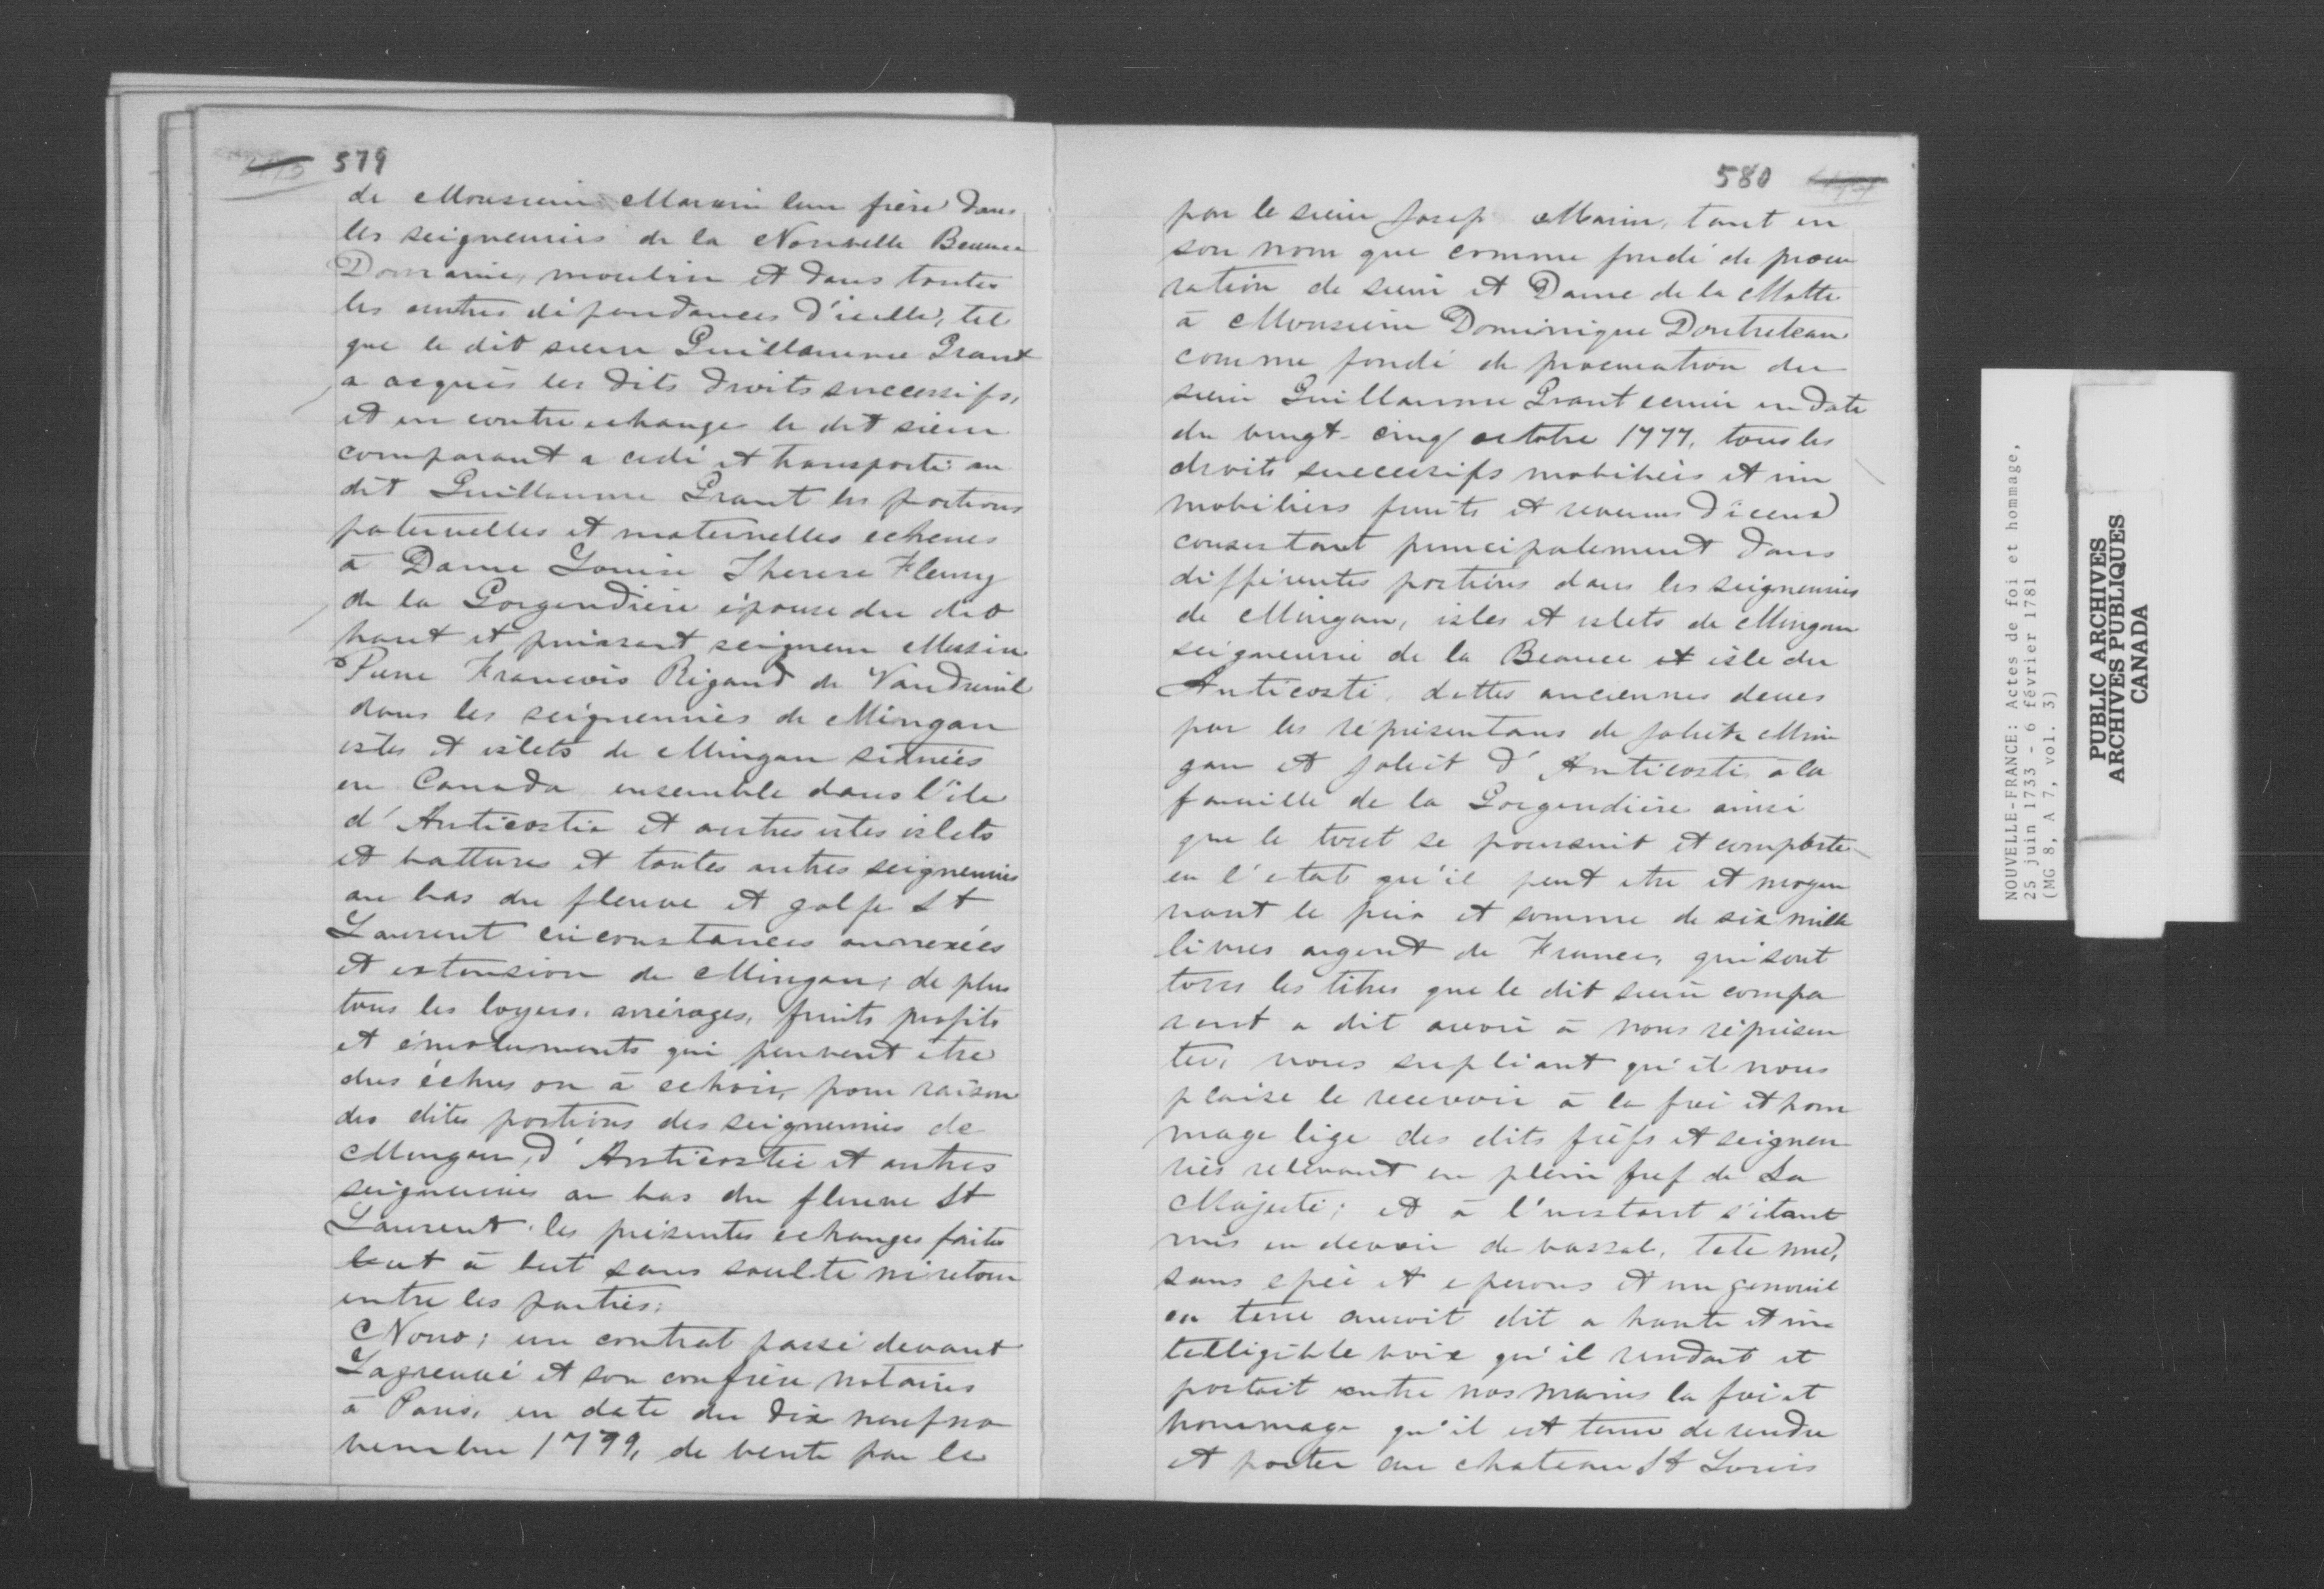 579
de Monsieur Marin leur frère dans
les seigneuries de la Nouvelle Beauce
Domaine, moulin et dans toutes
les autres dépendances d'icelle, tel
que le dit sieur Guillaume Grant
a acquis les dits droits successifs,
et en contre echange le dit sieur
comparant a cédé et transporté au
dit Guillaume Grant les portions
paternelles et maternelles echeues
à Dame Louise Therese Fleury
de la Gorgendière épouse du dit
haut et puissant seigneur Messire
Pierre Francois Rigaud de Vaudreuil
dans les seigneuries de Mingan
isles et islets de Mingan situées
en Canada ensemble dans l'ile
d'Anticostie et autres isles islets
et battures et toutes autres seigneuries
au bas du fleuve et golfe St
Laurent circonstances annexées
et extension de Mingan; de plus
tous les loyers, arrérages, fruits profits
et émoluments qui peuvent être
dus échus ou à echoir, pour raison
des dites portions des seigneuries de
Mingan, d'Anticostie et autres
seigneuries au bas du fleuve St
Laurent. les présentes echanges faites
but à but sans soulte ni retour
entre les parties;
Nono; un contrat passé devant
et son confrère notaires
à Paris, en date du dix neuf no
vembre 1779, de vente par le
580
par le sieur Josep Marin, tant en
son nom que comme fondé de procu
ration de sieur et Dame de la Motte
à Monsieur Dominique
comme fondé de procuration du
sieur Guillaume Grant ecuier en date
du vingt-cinq octobre 1777, tous les
droits successifs mobiliers et im
mobiliers fruits et revenus d'iceux
consistant principalement dans
différentes portions dans les seigneuries
de Mingan, isles et islets de Mingan
seigneurie de la Beauce et isle du
Anticosti. dettes anciennes deues
par les représentans de Joliet Min
gan et Joliet d'Anticosti à la
famille de la Gorgendière ainsi
que le tout se poursuit et comporte
en l'etat qu'il peut etre et moyen
nant le prix et somme de six mille
livres argent de France, qui sont
tous les titres que le dit sieur compa
rant a dit avoir à nous représen
ter, nous supliant qu'il nous
plaise le recevoir à la foi et hom
mage lige des dits fiefs et seigneu
ries relevant en plein fief de Sa
Majesté; et à l'instant s'étant
mis en devoir de vassal, tete nue,
sans epée et eperons et un genouil
en terre auroit dit a haute et in
telligible voix qu'il rendait et
portait entre nos mains la foi et
hommage qu'il est tenu de rendre
et porter au chateau St Louis
NOUVELLE-FRANCE: Actes de foi et hommage,
25 juin 1733 - 6 février 1781
(MG 8, A 7, vol. 3)
PUBLIC ARCHIVES
ARCHIVES PUBLIQUES
CANADA